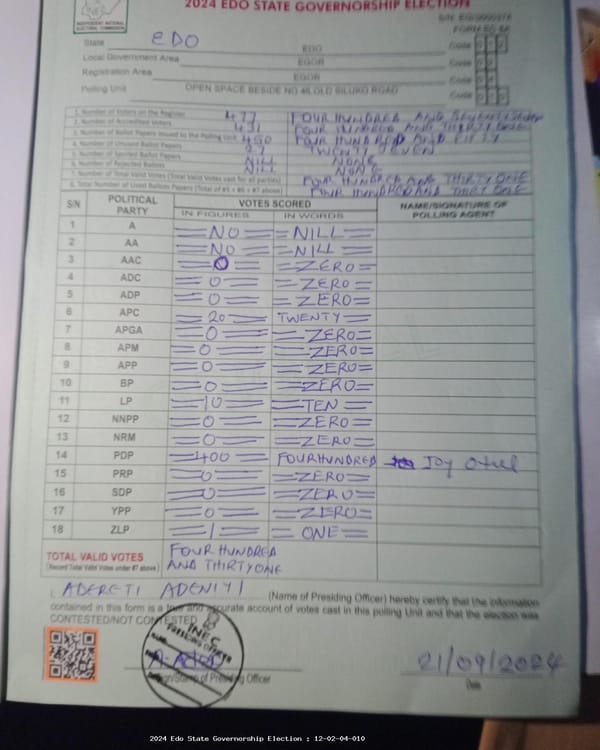 2024 EDO STATE GOVERNORSHIP ELECTION
INDEPENDENT NATIONAL ELECTORAL COMMISSION
FORM EC 8A
State EDO EDO Code
Local Government Area EGOR Code
Registration Area EGOR Code
Polling Unit OPEN SPACE BESIDE NO 45, OLD SILUKO ROAD Code
1. Number of Voters on the Register 477 FOUR HUNDRED AND
2. Number of Accredited Voters 431 FOUR HUNDRED AND THIRTY ONE
3. Number of Ballot Papers issued to the Polling Unit 450 FOUR HUNDRED AND FIFTY
4. Number of Unused Ballot Papers 27 TWENTY SEVEN
5. Number of Spoiled Ballot Papers NILL NONE
6. Number of Rejected Ballots NILL NONE
7. Number of Total Valid Votes (Total Valid Votes cast for all parties) FOUR HUNDRED AND THIRTY ONE
8. Total Number of Used Ballots Papers (Total of #5 + #6 + #7 above) FOUR HUNDRED AND THIRTY ONE
S/N POLITICAL PARTY VOTES SCORED NAME/SIGNATURE OF POLLING AGENT
IN FIGURES IN WORDS
1 A NO NILL
2 AA NO NILL
3 AAC 0 ZERO
4 ADC 0 ZERO
5 ADP 0 ZERO
6 APC 20 TWENTY
7 APGA 0 ZERO
8 APM 0 ZERO
9 APP 0 ZERO
10 BP 0 ZERO
11 LP 10 TEN
12 NNPP 0 ZERO
13 NRM 0 ZERO
14 PDP 400 FOUR HUNDRED Joy
15 PRP 0 ZERO
16 SDP 0 ZERO
17 YPP 0 ZERO
18 ZLP 1 ONE
TOTAL VALID VOTES FOUR HUNDRED
(Record Total Valid Votes under #7 above) AND THIRTY ONE
I, ADERETI ADENIYI (Name of Presiding Officer) hereby certify that the information
contained in this form is a true and accurate account of votes cast in this polling Unit and that the election was
CONTESTED/NOT CONTESTED
INEC
21/09/2024
Sign/Stamp of Presiding Officer Date
2024 Edo State Governorship Election : 12-02-04-010